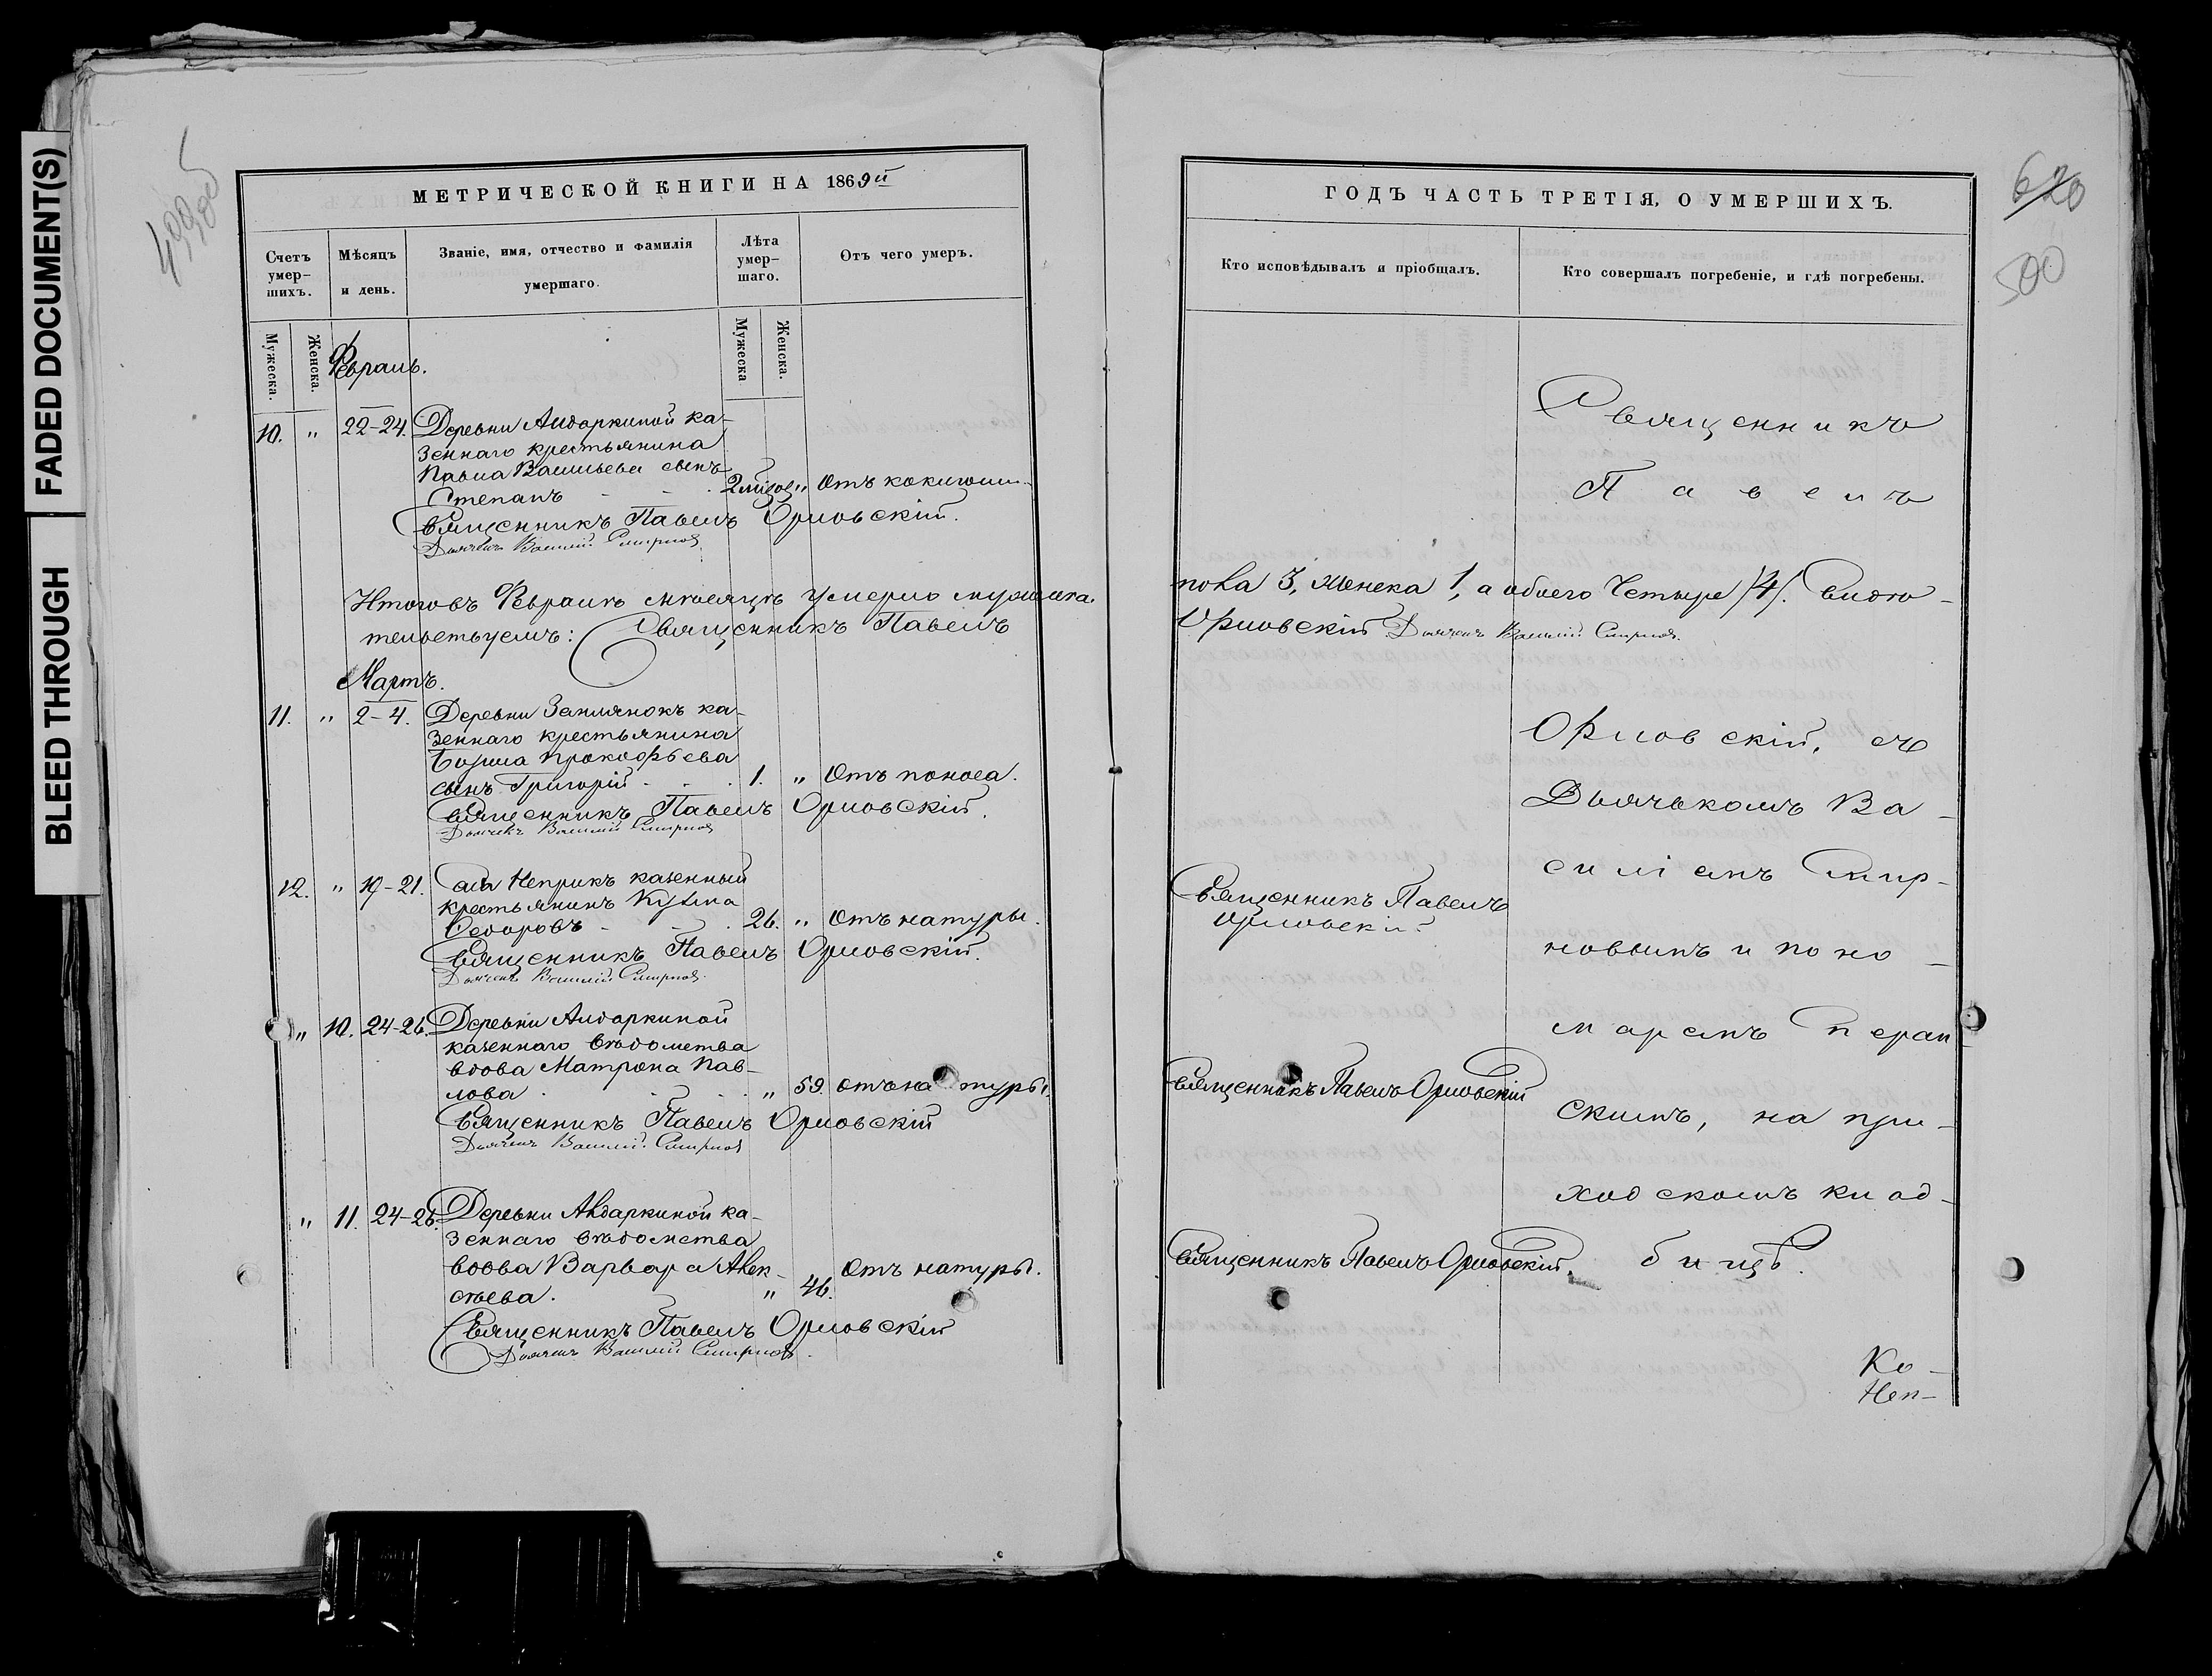 FADED DOCUMENT(S)
BLEED THROUGH
МЕТРИЧЕСКОЙ КНИГИ НА 1869й
Счетъ умер-шихъ.
Мѣсяцъ и день.
Званіе, имя, отчество и фамилія умершаго.
Лѣта умер-шаго.
Отъ чего умеръ.
Мужеска.
Женска.
Мужеска
Женска.
Февраль.
10. " 22-24. Деревни Андаркиной ка-
зеннаго крестьянина
Павла Васильева сынъ
Степанъ " Отъ
Священникъ Павелъ Орловскій.
Дьячекъ Василій Смирновъ
Итогов Февралѣ мѣсяцѣ умерло мужеска
тельствуемъ: Священникъ Павелъ
Мартъ.
11. " 2-4. Деревни Землянокъ ка-
зеннаго крестьянина
Прокофьева
сынъ Григорій 1. " Отъ поноса.
Священникъ Павелъ Орловскій.
Дьячекъ Василій Смирновъ
12. " 19-21. Села Неприкъ казенный
крестьянинъ Кузьма
Ѳедоровъ 26. " Отъ натуры.
Священникъ Павелъ Орловскій.
Дьячекъ Василій Смирновъ.
" 10. 24-26. Деревни Андаркиной
казеннаго вѣдомства
вдова Матрона Пав-
лова " 59. отъ натуры.
Священникъ Павелъ Орловскій
Дьячекъ Василій Смирновъ
" 11. 24-26. Деревни Андаркиной ка-
зеннаго вѣдомства
вдова Варвара Алек-
сѣева. " 46. Отъ натуры.
Священникъ Павелъ Орловскій
Дьячекъ Василій Смирновъ.
ГОДЪ ЧАСТЬ ТРЕТІЯ, О УМЕРШИХЪ.
620
500
Кто исповѣдывалъ и пріобщалъ.
Кто совершалъ погребеніе, и гдѣ погребены.
Священникъ
Павелъ
пола 3, женска 1, а обоего Четыре /4/. Свидѣ-
Орловскій Дьячекъ Василій Смирновъ.
Орловскій, съ
Дьячькомъ Ва-
силіемъ Смир-
Священникъ Павелъ
Орловскій
новымъ и поно-
маремъ
Священникъ Павелъ Орловскій
скимъ, на при-
ходскомъ клад-
Священникъ Павелъ Орловскій.
бищѣ.
Ко-
Неп-